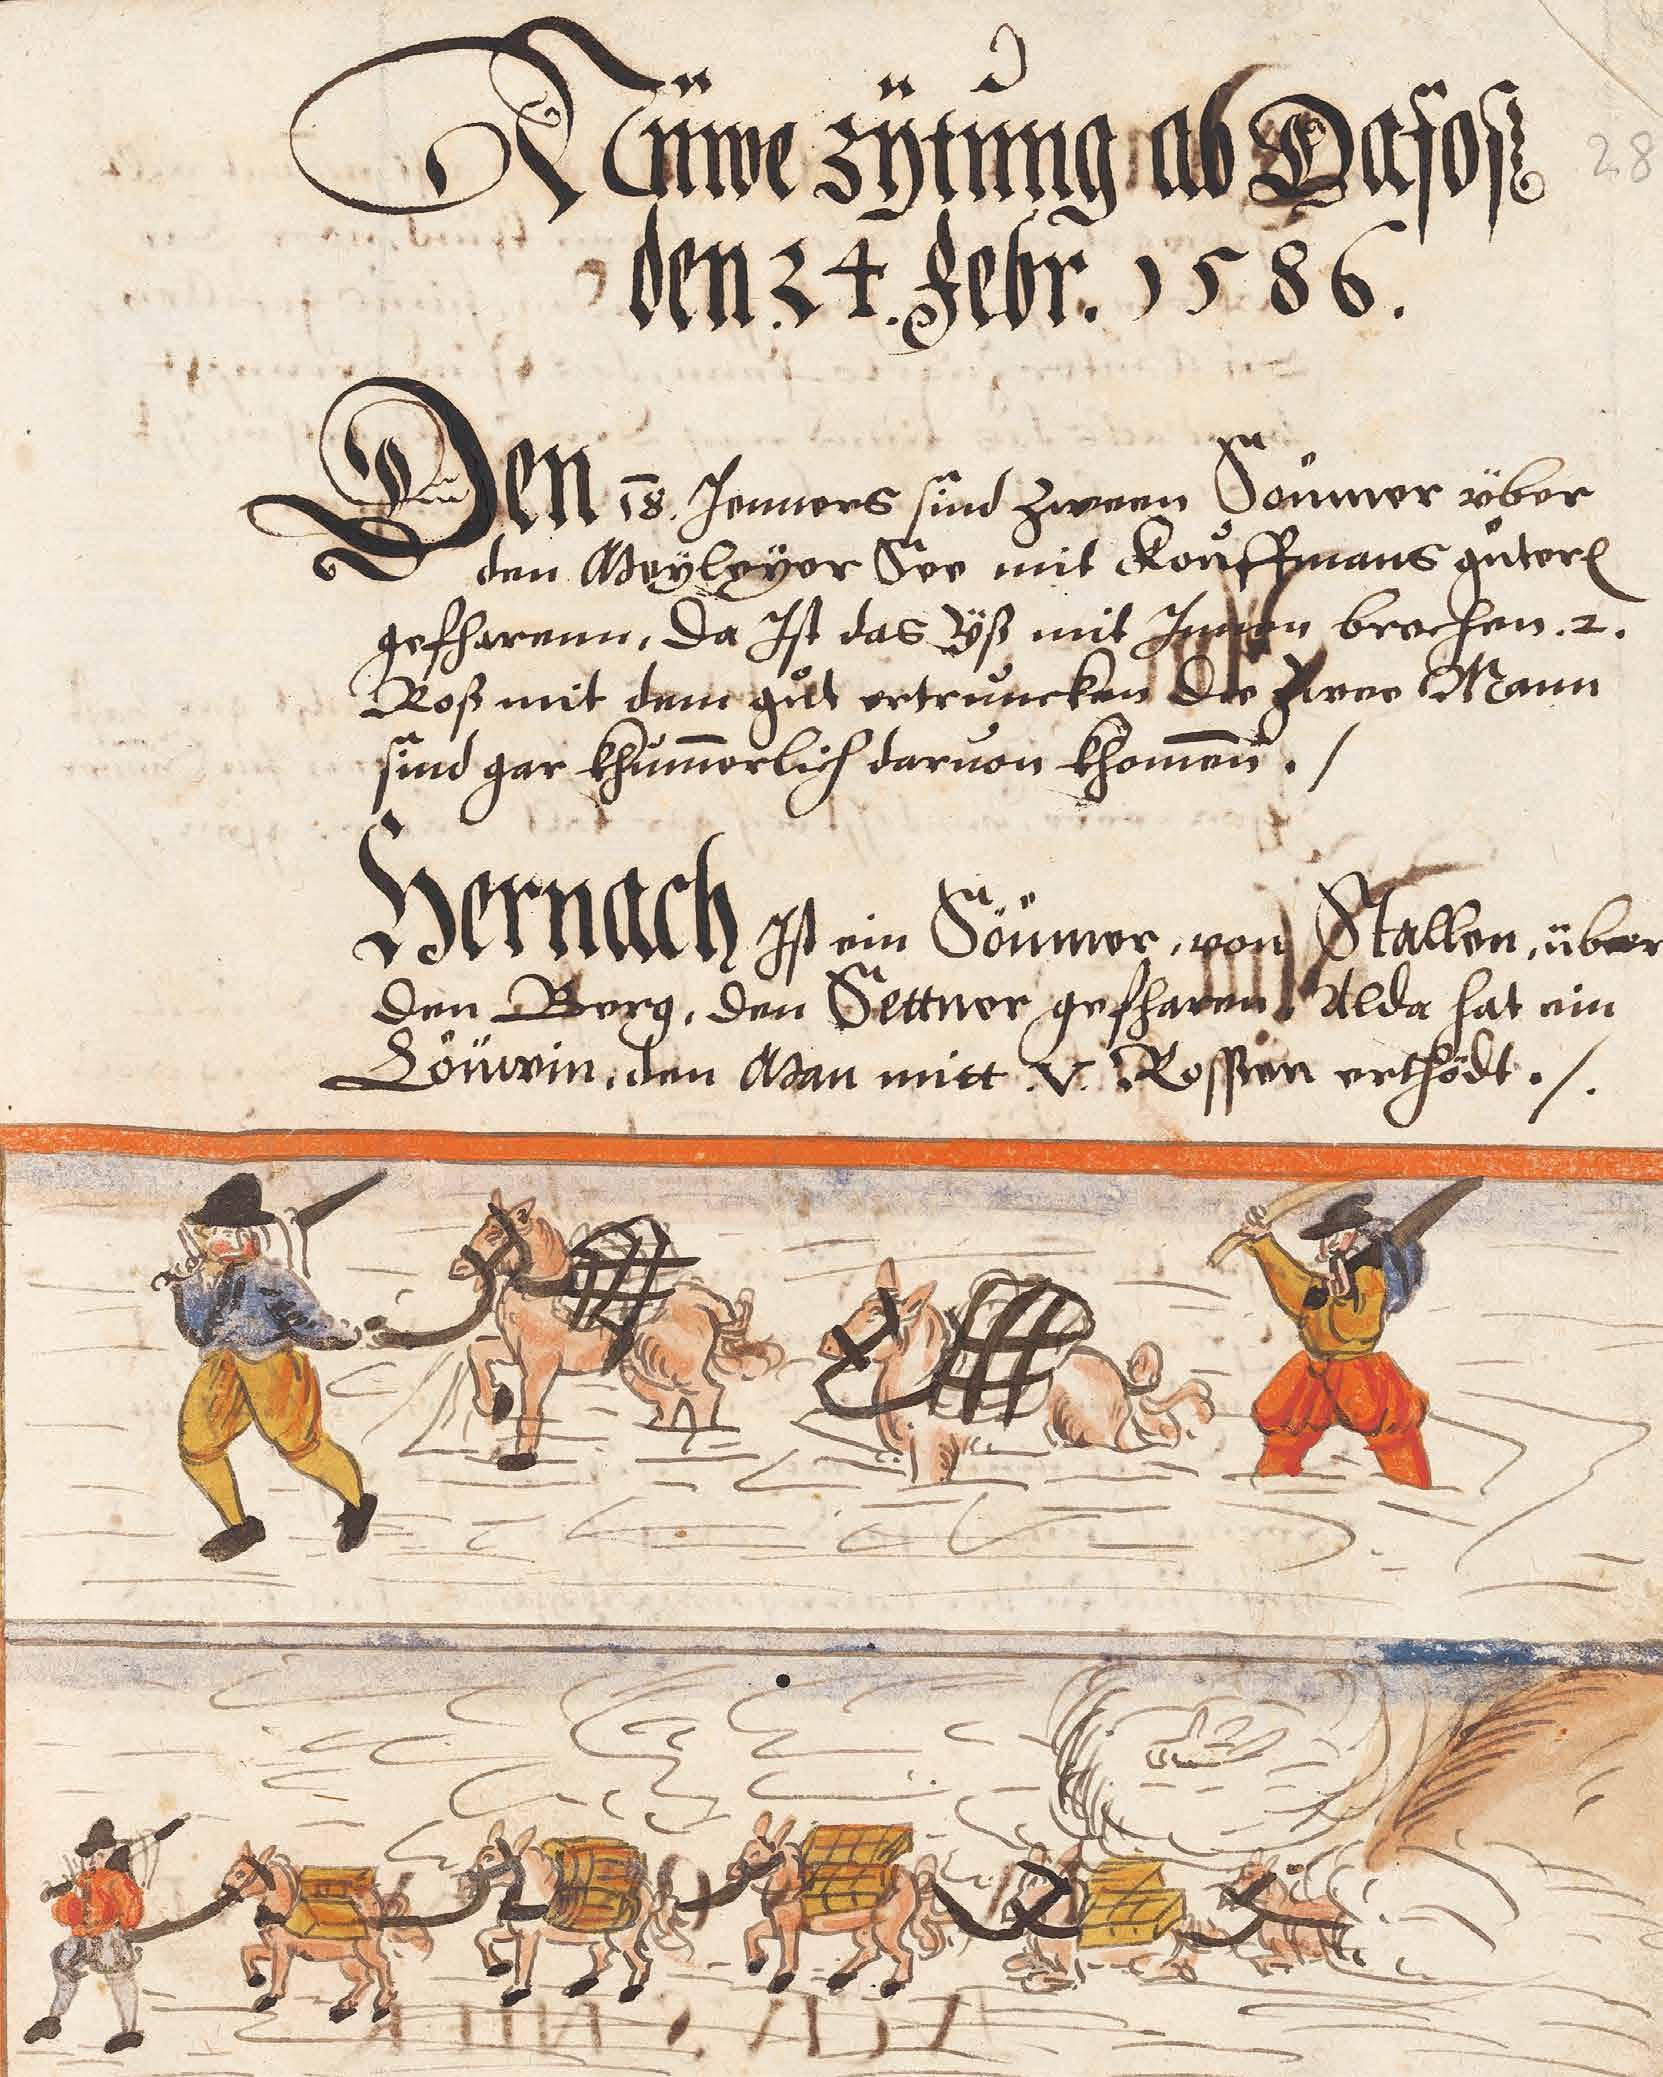 Nüwe zÿtung ab Dafos
28
den .24. Febr. 1586.
Den 18. Jenners sind zween Söumer über
den Weÿlyer See mit Kouffmans güteren
gefharenn, Da Ist das Yß mit Innen brochen .2.
Roß mit dem gůt ertruncken Die zwee Mann
sind gar khum̄erlich daruon khomen̄ . /
Hernach Ist ein Söumer, von Stallen, über
den Berg, den Settner gefharen, Alda hat ein
Löuwin, den Man mitt .V. Rossen erthödt . / .